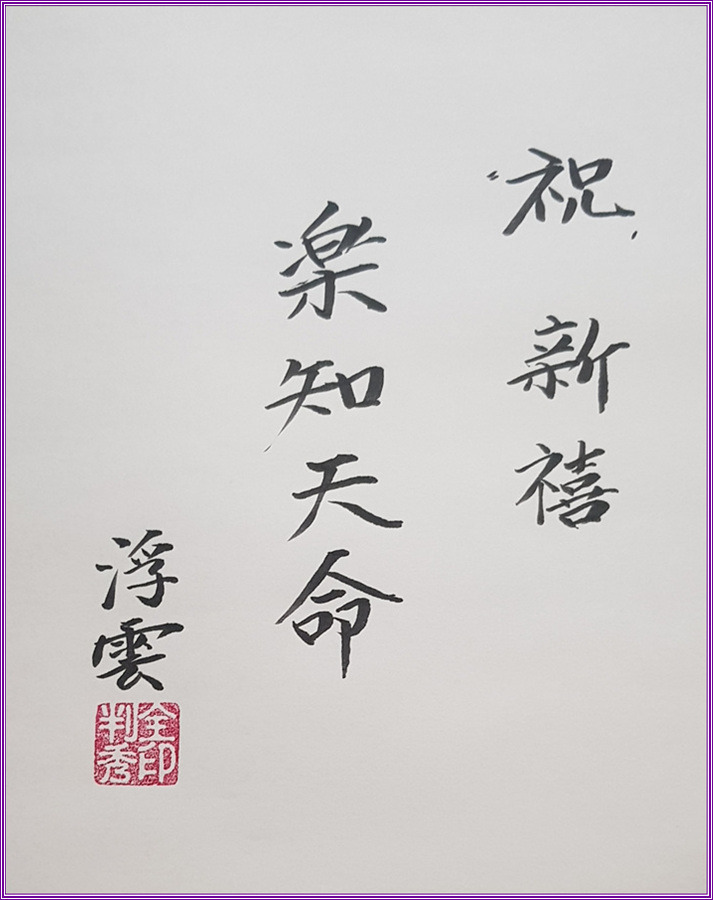 祝新禧
楽知天命
浮雲
全印
判秀